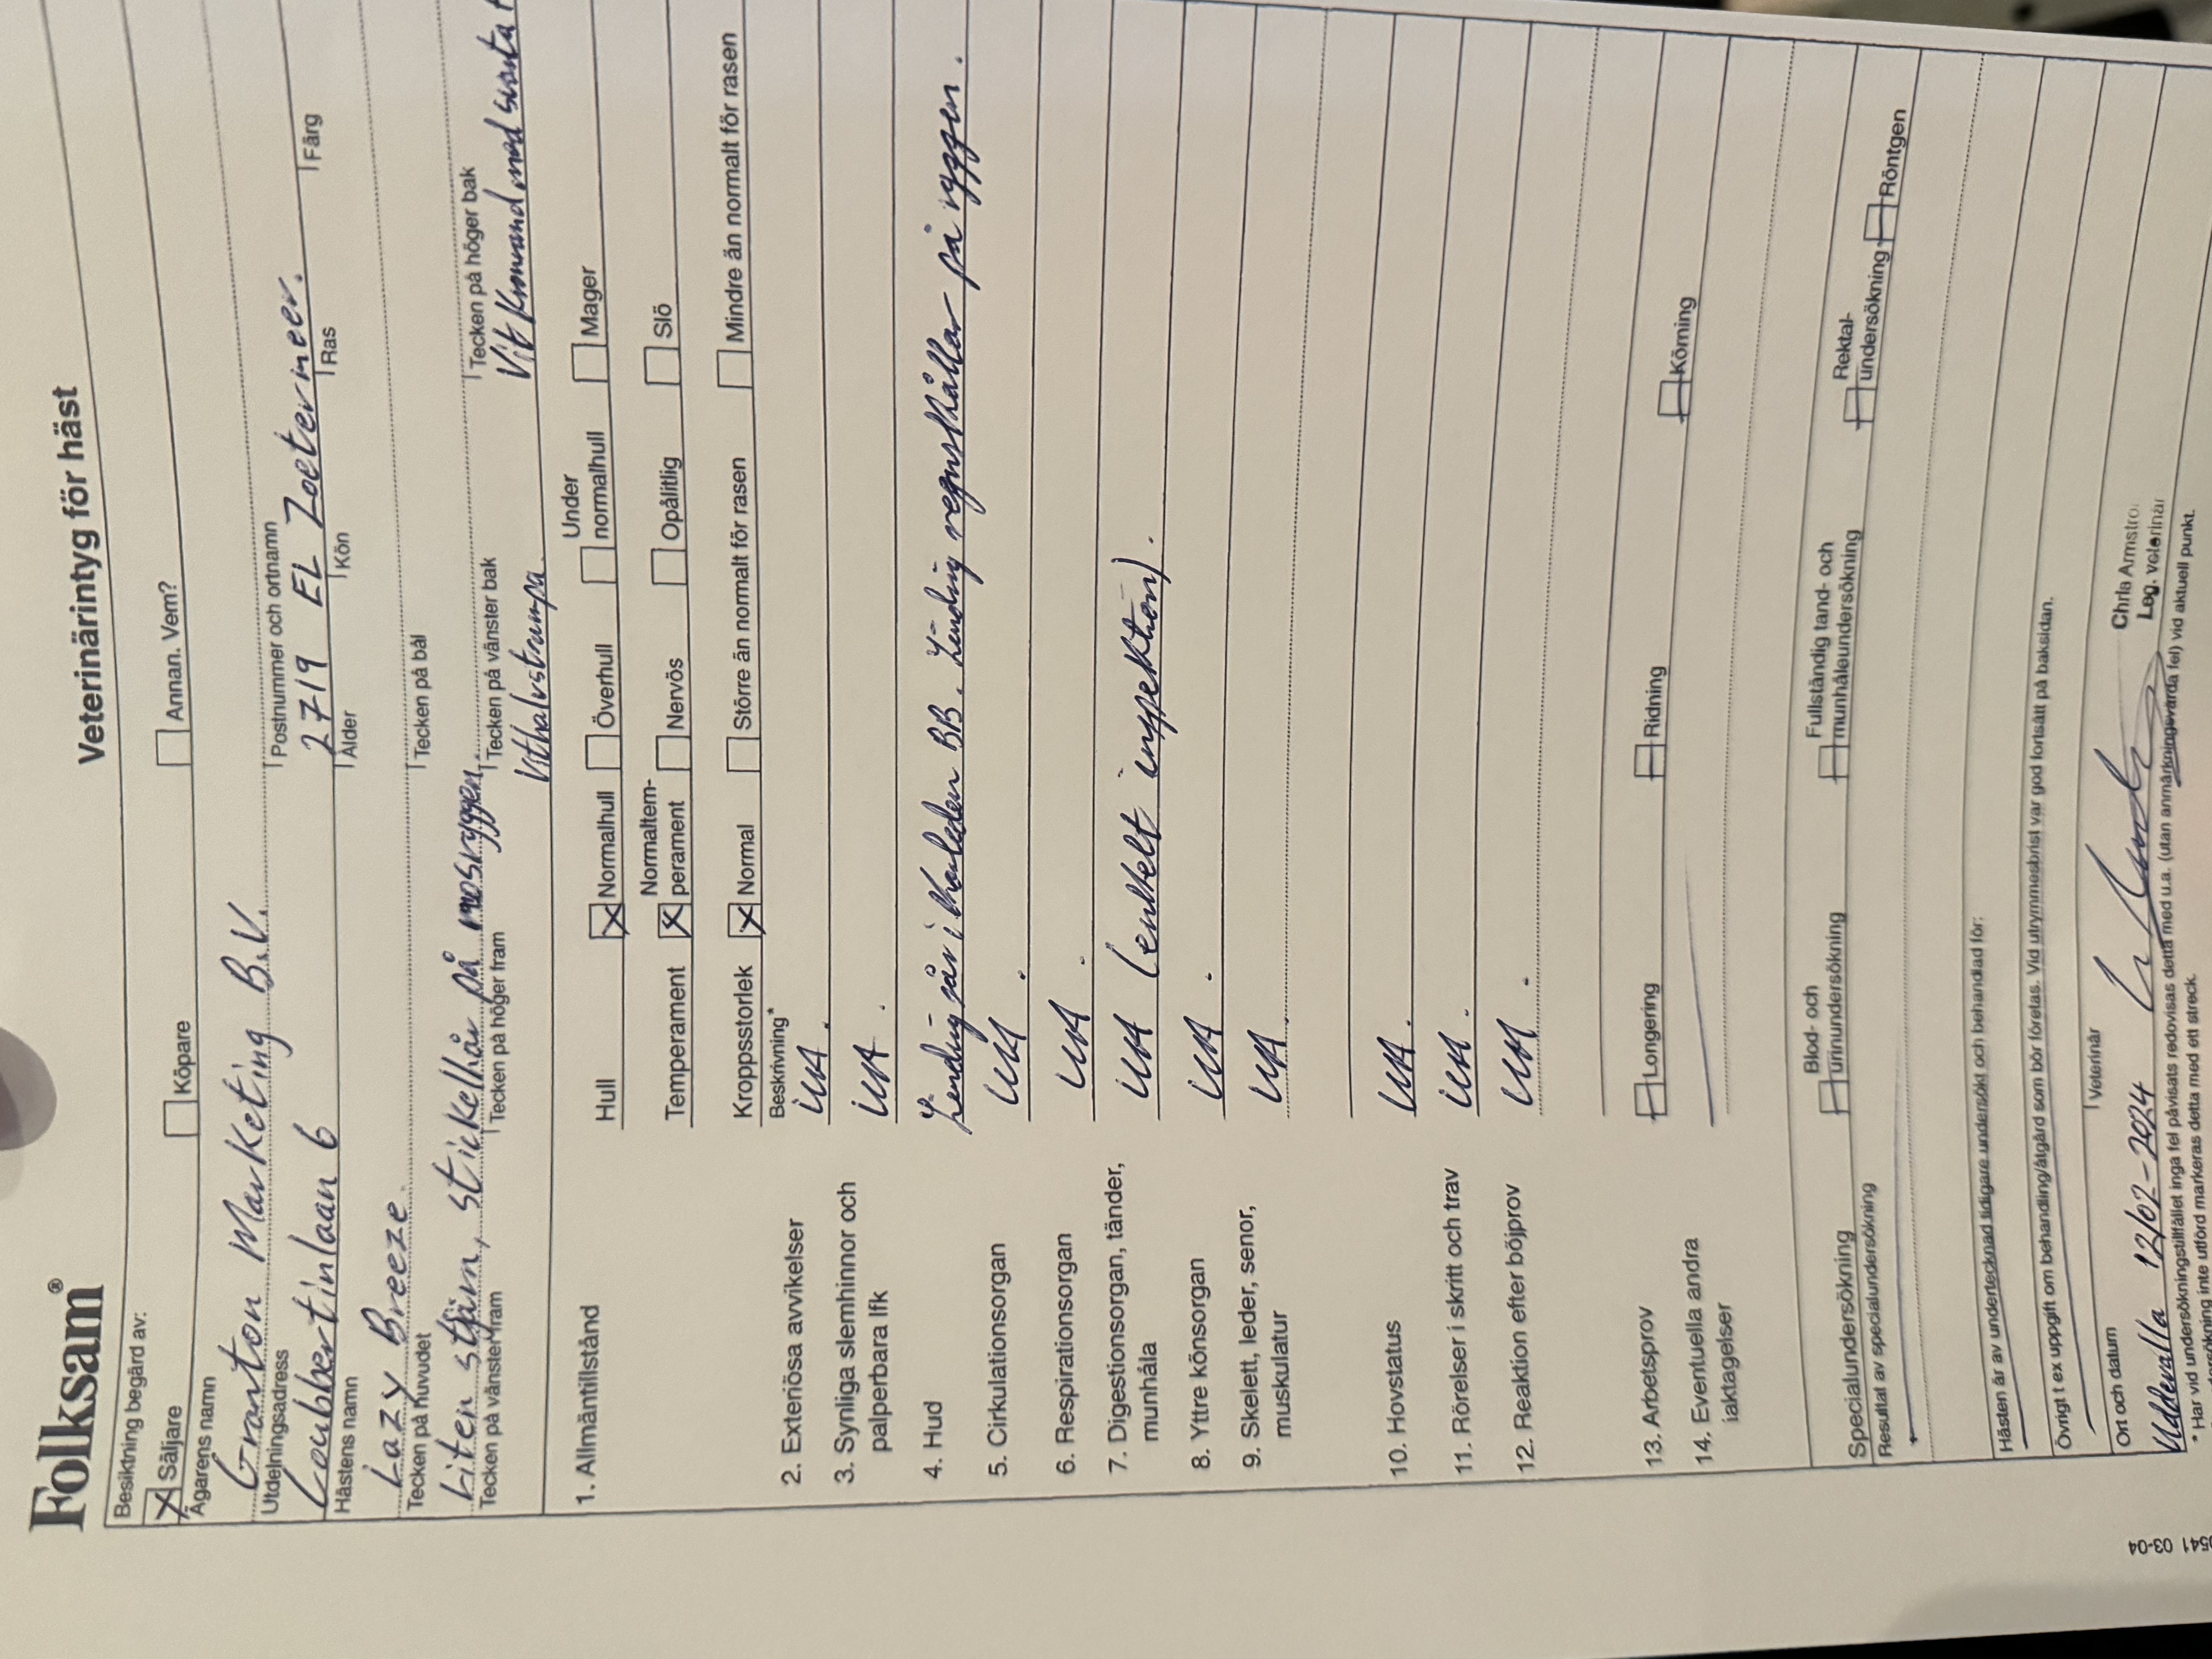 Folksam®
Veterinärintyg för häst
Besiktning begärd av:
Säljare
Köpare
Annan. Vem?
Ägarens namn
Granton Marketing B.V.
Utdelningsadress
Postnummer och ortnamn
Coubbertinlaan 6
2719 EL Zoetermeer.
Hästens namn
Ålder
Kön
Ras
Färg
Lazy Breeze
Tecken på huvudet
Tecken på bål
Liten stjärn, stickelhår på nosryggen.
Tecken på vänster fram
Tecken på höger fram
Tecken på vänster bak
Tecken på höger bak
Vithalvstrumpa
Vit kronrand med svarta
1. Allmäntillstånd
Hull
Normalhull
Överhull
Under normalhull
Mager
Temperament
Normaltemperament
Nervös
Opålitlig
Slö
Kroppsstorlek
Normal
Större än normalt för rasen
Mindre än normalt för rasen
Beskrivning*
2. Exteriösa avvikelser
UA.
3. Synliga slemhinnor och
palperbara lfk
UA.
4. Hud
Lindrig sår i karleden BB. Lindrig regnskållar på ryggen.
5. Cirkulationsorgan
UA.
6. Respirationsorgan
UA.
7. Digestionsorgan, tänder,
munhåla
UA (enkelt inspektion).
8. Yttre könsorgan
UA.
9. Skelett, leder, senor,
muskulatur
UA.
10. Hovstatus
UA.
11. Rörelser i skritt och trav
UA.
12. Reaktion efter böjprov
UA.
13. Arbetsprov
Longering
Ridning
Körning
14. Eventuella andra
iaktagelser
Specialundersökning
Blod- och
urinundersökning
Fullständig tand- och
munhåleundersökning
Rektal-
undersökning
Röntgen
Resultat av specialundersökning
Hästen är av undertecknad tidigare undersökt och behandlad för:
Övrigt t ex uppgift om behandling/åtgärd som bör företas. Vid utrymmesbrist var god fortsätt på baksidan.
Ort och datum
Veterinär
Uddevalla 12/02-2024
Chris Armstro
Leg. veterinär
* Har vid undersökningstillfället inga fel påvisats redovisas detta med u.a. (utan anmärkningsvärda fel) vid aktuell punkt.
undersökning inte utförd markeras detta med ett streck.
541 03-04